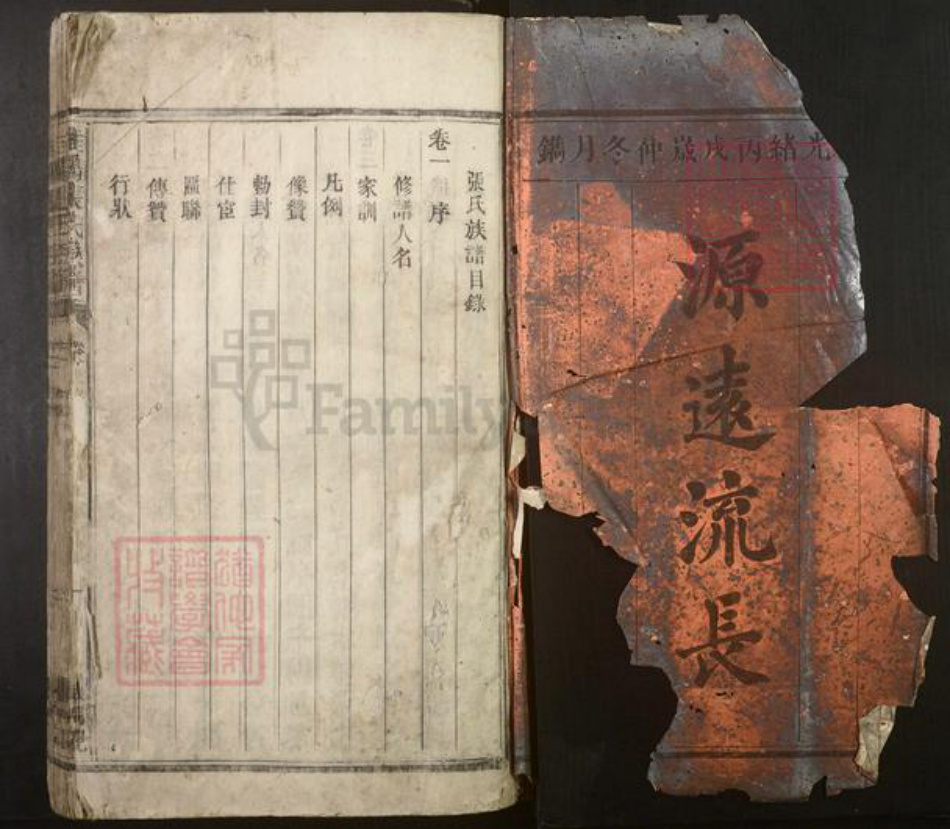 光緒丙戌歲仲冬月鐫
源遠流長
張氏族譜目錄
卷一 序
修譜人名
家訓
凡例
像贊
勅封
仕宦
匾聯
傳贊
行狀
Family